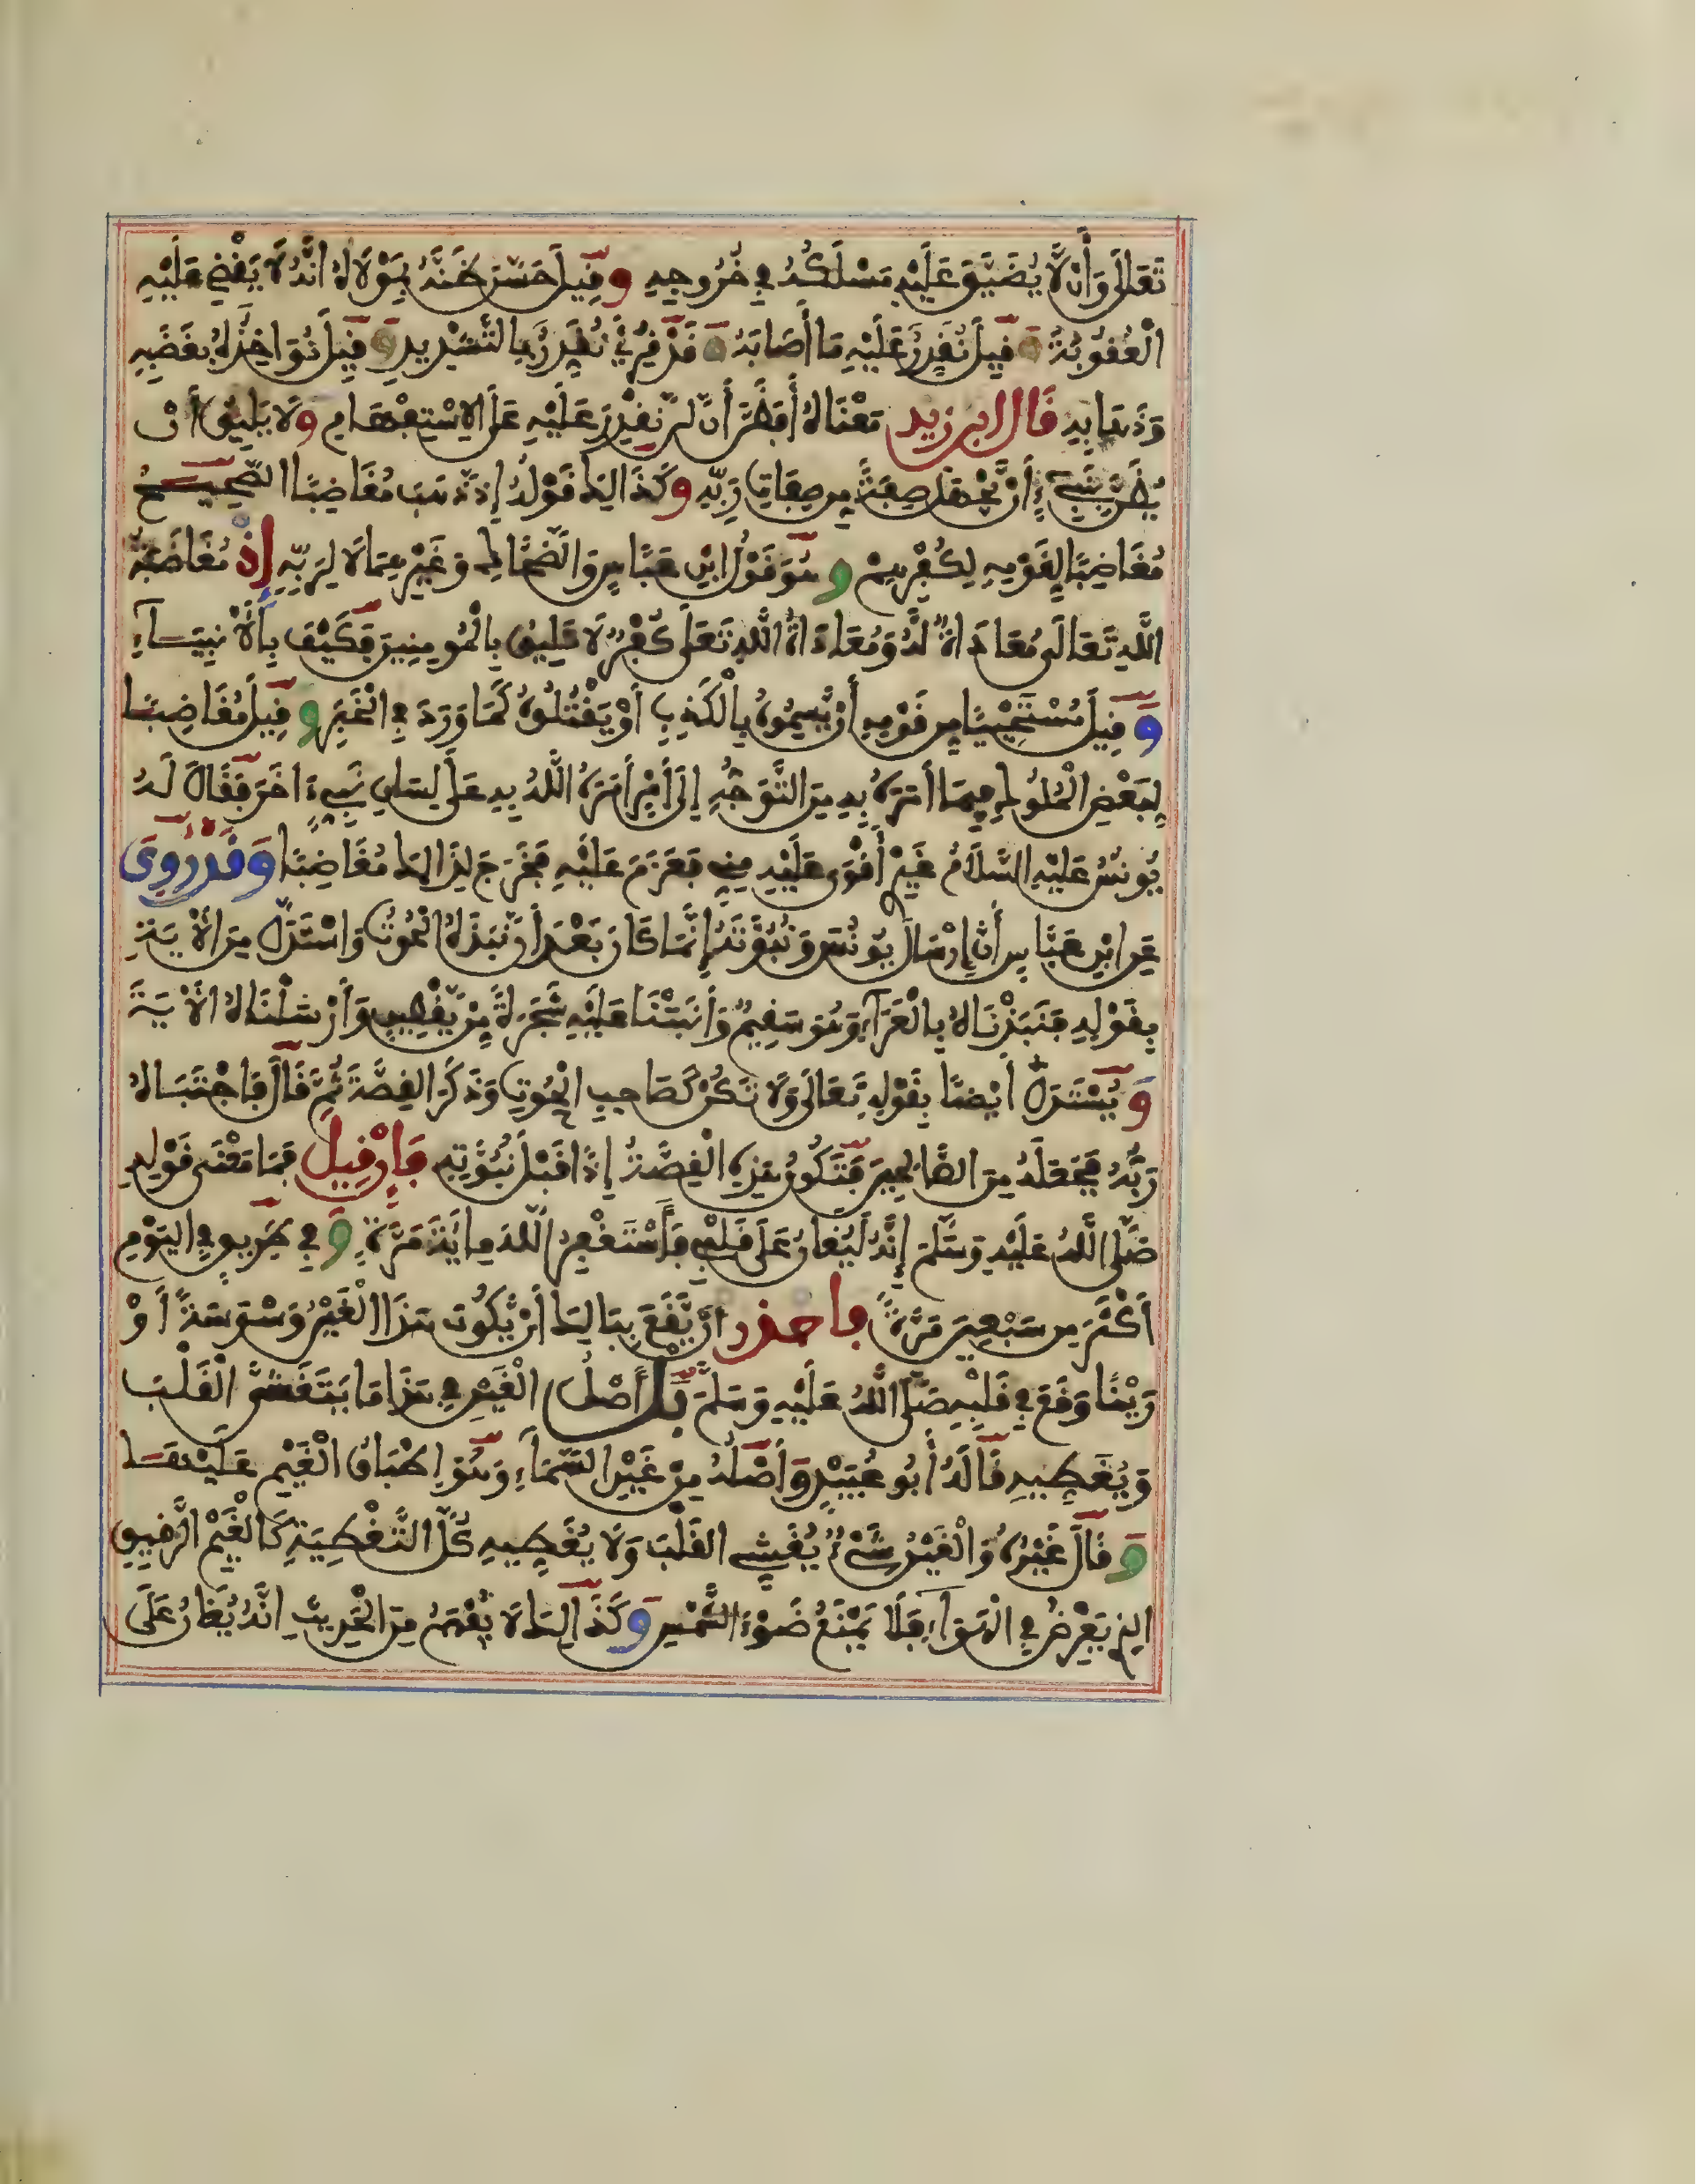 تَعَالَى وَأَن لَّا يُضَيِّقَ عَلَيْهِ مَسْلَكَهُ فِي خُرُوجِهِ وَقِيلَ حَسَّنَ ظَنَّهُ بِمَوْلَاهُ أَنَّهُ لَا يَقْضِي عَلَيْهِ
الْعُقُوبَةَ وَقِيلَ نُقَدِّرُ عَلَيْهِ مَا أَصَابَهُ وَقَدْ قُرِئَ نُقَدِّرَ بِالتَّشْدِيدِ وَقِيلَ نُوَاخِذُهُ بِغَضَبِهِ
وَذَهَابِهِ قَالَ ابن زيد مَعْنَاهُ أَفَظَنَّ أَن لَّن نَّقْدِرَ عَلَيْهِ عَلَى الِاسْتِفْهَامِ وَلَا يَلِيقُ أَنْ
يُظَنَّ بِنَبِيٍّ أَنْ يَجْهَلَ صِفَةً مِن صِفَاتِ رَبِّهِ وَكَذَالِكَ قَوْلُهُ إِذ ذَّهَبَ مُغَاضِبًا الصَّحِيحُ
مُغَاضِبًا لِقَوْمِهِ لِكُفْرِهِمْ وَهُوَ قَوْلُ ابْنِ عَبَّاسٍ وَالضَّحَّاكِ وَغَيْرِهِمَا لَا لِرَبِّهِ إِذْ مُغَاضَبَةُ
اللَّهِ تَعَالَى مُعَادَاةٌ لَّهُ وَمُعَادَاةُ اللَّهِ تَعَلَى كُفْرٌ لَا تَلِيقُ بِالْمُومِنِينَ فَكَيْفَ بِالْأَنْبِيَآءِ
وَقِيلَ مُسْتَحْيِيًا مِن قَوْمِهِ أَنْ يَّسِمُوهُ بِالْكَذِبِ أَوْ يَقْتُلُوهُ كَمَا وَرَدَ فِي الْخَبَرِ وَقِيلَ مُغَاضِبًا
لِبَعْضِ الْمُلُوكِ فِيمَا أَمَرَهُ بِهِ مِنَ التَّوَجُّهِ إِلَى أَمْرٍ أَمَرَهُ اللَّهُ بِهِ عَلَى لِسَانِ نَبِيٍّ اخَرَ فَقَالَ لَهُ
يُونُسُ عَلَيْهِ السَّلَامُ غَيْرِي أَقْوَى عَلَيْهِ مِنِّي فَعَزَمَ عَلَيْهِ فَخَرَجَ لِذَالِكَ مُغَاضِبًا وَقَدْ رُوِيَ
عَنِ ابْنِ عَبَّاسٍ أَنَّ إِرْسَالَ يُونُسَ وَنُبُوَّتَهُ إِنَّمَا كَانَ بَعْدَ أَن نَّبَذَهُ الْحُوتُ وَاسْتَدَلَّ مِنَ الْأيَةِ
بِقَوْلِهِ فَنَبَذْنَاهُ بِالْعَرَآءِ وَهُوَ سَقِيمٌ وَأَنبَتْنَا عَلَيْهِ شَجَرَةً مِّن يَّقْطِينٍ وَأَرْسَلْنَاهُ الْأيَةَ
وَيُسْتَدَلُّ أَيْضًا بِقَوْلِهِ تَعَالَى وَلَا تَكُن كَصَاحِبِ الْحُوتِ وَذَكَرَ الْقِصَّةَ ثُمَّ قَالَ فَاجْتَبَاهُ
رَبُّهُ فَجَعَلَهُ مِنَ الصَّالِحِينَ فَتَكُونُ هَذِهِ الْقِصَّةُ إِذًا قَبْلَ نُبُوَّتِهِ فَإِن قِيلَ فَمَا مَعْنَى قَوْلِهِ
صَلَّى اللَّهُ عَلَيْهِ وَسَلَّمَ إِنَّهُ لَيُغَانُ عَلَى قَلْبِي فَأَسْتَغْفِرُ اللَّهَ مِايَةَ مَرَّةٍ وَفِي طَرِيقٍ فِي الْيَوْمِ
أَكْثَرَ مِن سَبْعِينَ مَرَّةً فاحذر أَنْ يَّقَعَ بِبَالِكَ أَنْ يَّكُونَ هَذَا الْغَيْنُ وَسْوَسَةً أَوْ
رَيْنًا وَقَعَ فِي قَلْبِهِ صَلَّى اللَّهُ عَلَيْهِ وَسَلَّمَ بَلْ أَصْلُ الْغَيْنِ فِي هَذَا مَا يَتَغَشَّى الْقَلْبَ
وَيُغَطِّيهِ قَالَهُ أَبُو عُبَيْدٍ وَأَصْلُهُ مِنْ غَيْنِ السَّمَآءِ وَهُوَ إِطْبَاقُ الْغَيْمِ عَلَيْهَا
وَقَالَ غَيْرُهُ وَالْغَيْنُ شَيْءٌ يُغَشِّي الْقَلْبَ وَلَا يُغَطِّيهِ كُلَّ التَّغْطِيَةِ كَالْغَيْمِ الرَّقِيقِ
الذِي يَعْرِضُ فِي الْهَوَآءِ فَلَا يَمْنَعُ ضَوْءَ الشَّمْسِ وَكَذَالِكَ لَا يُفْهَمُ مِنَ الْحَدِيثِ أَنَّهُ يُغَانُ عَلَى